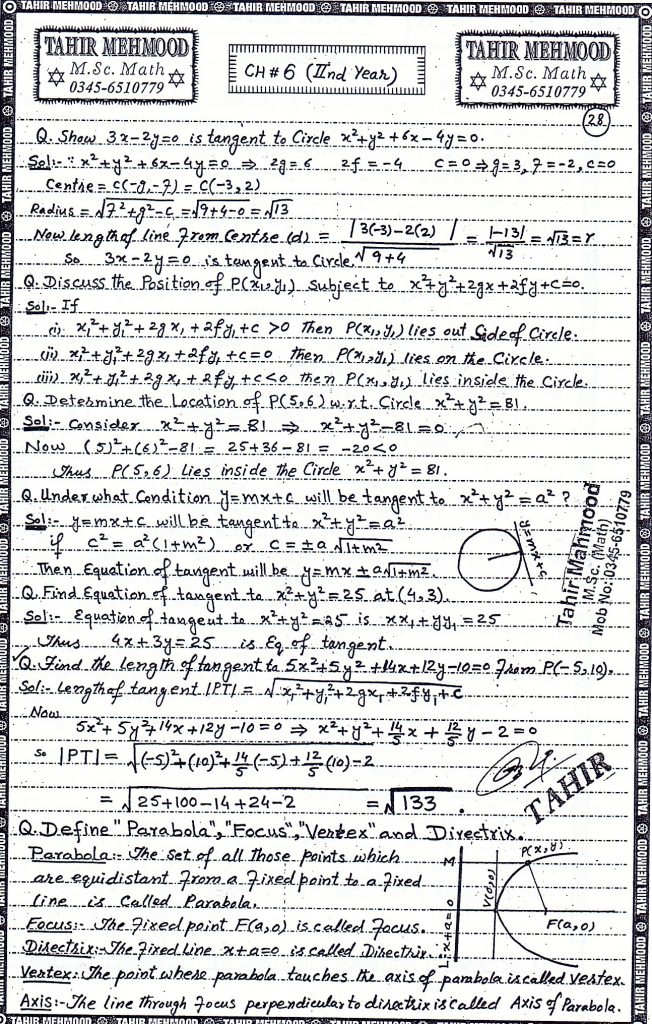 TAHIR MEHMOOD TAHIR MEHMOOD TAHIR MEHMOOD TAHIR MEHMOOD TAHIR MEHMOOD TAHIR MEHMOOD
TAHIR MEHMOOD
M.Sc. Math
0345-6510779
CH # 6 (IInd Year)
TAHIR MEHMOOD
M.Sc. Math
0345-6510779
28
Q. Show 3x-2y=0 is tangent to Circle x²+y²+6x-4y=0.
Sol:- ∵ x²+y²+6x-4y=0 ⇒ 2g=6 2f=-4 c=0 ⇒ g=3, f=-2, c=0
Centre = C(-g,-f) = C(-3,2)
Radius = √f²+g²-c = √9+4-0 = √13
Now length of line from Centre (d) = |3(-3)-2(2)| / √9+4 = |-13| / √13 = √13 = r
So 3x-2y=0 is tangent to Circle.
Q. Discuss the Position of P(x₁,y₁) subject to x²+y²+2gx+2fy+c=0.
Sol:- If
(i) x₁²+y₁²+2gx₁+2fy₁+c >0 Then P(x₁,y₁) lies out Side of Circle.
(ii) x₁²+y₁²+2gx₁+2fy₁+c=0 then P(x₁,y₁) lies on the Circle.
(iii) x₁²+y₁²+2gx₁+2fy₁+c<0 then P(x₁,y₁) lies inside the Circle.
Q. Determine the Location of P(5,6) w.r.t. Circle x²+y²=81.
Sol:- Consider x²+y²=81 ⇒ x²+y²-81=0
Now (5)²+(6)²-81 = 25+36-81 = -20<0
Thus P(5,6) Lies inside the Circle x²+y²=81.
Q. Under what Condition y=mx+c will be tangent to x²+y²=a²?
Sol:- y=mx+c will be tangent to x²+y²=a²
if c²=a²(1+m²) or c=±a√1+m²
Then Equation of tangent will be y=mx±a√1+m².
y=mx+c
Tahir Mahmood
M.Sc. (Math)
Mob No:0345-6510779
Q. Find Equation of tangent to x²+y²=25 at (4,3).
Sol:- Equation of tangent to x²+y²=25 is xx₁+yy₁=25
Thus 4x+3y=25 is Eq. of tangent.
Q. Find the length of tangent to 5x²+5y²+14x+12y-10=0 from P(-5,10).
Sol:- Length of tangent |PT| = √x₁²+y₁²+2gx₁+2fy₁+c
Now
5x²+5y²+14x+12y-10=0 ⇒ x²+y²+14/5 x+12/5 y-2=0
So |PT| = √(-5)²+(10)²+14/5(-5)+12/5(10)-2
= √25+100-14+24-2 = √133.
TAHIR
Q. Define "Parabola", "Focus", "Vertex" and Directrix.
Parabola:- The set of all those points which
are equidistant from a fixed point to a fixed
line is Called Parabola.
Focus:- The fixed point F(a,0) is called focus.
Directrix:- The fixed Line x+a=0 is called Directrix.
M
P(x,y)
V(0,0)
F(a,0)
L: x+a=0
Vertex: The point where parabola touches the axis of parabola is called vertex.
Axis:- The line through focus perpendicular to directrix is called Axis of Parabola.
TAHIR MEHMOOD TAHIR MEHMOOD TAHIR MEHMOOD TAHIR MEHMOOD TAHIR MEHMOOD TAHIR MEHMOOD